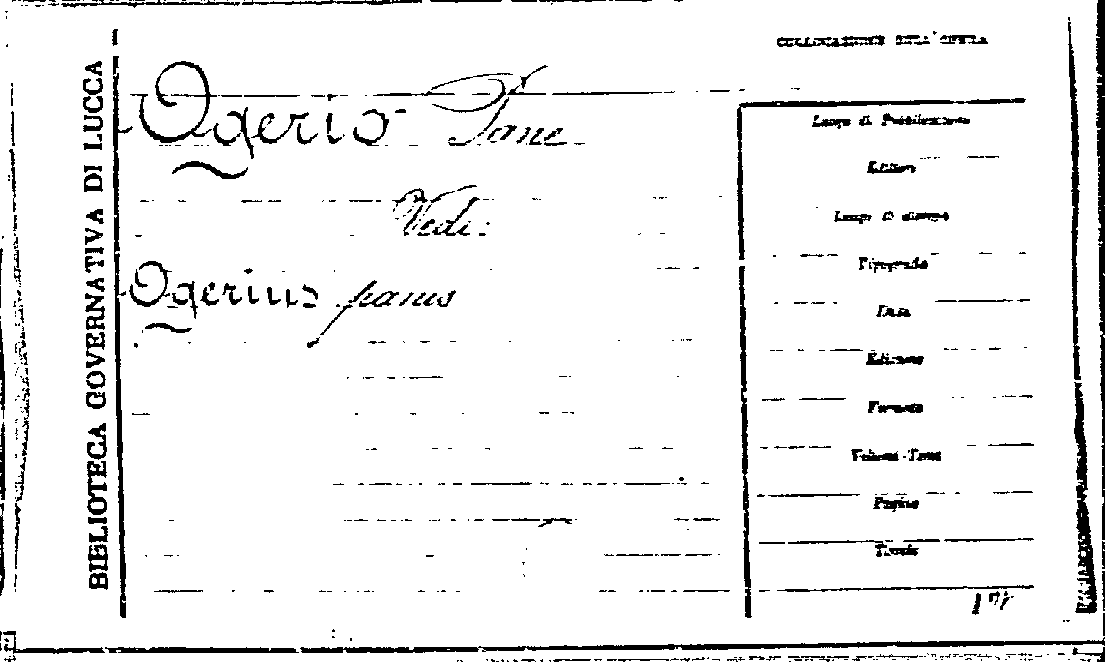 BIBLIOTECA GOVERNATIVA DI LUCCA
COLLOCAZIONE DELL'OPERA
Ogerio Pane
Vedi:
Ogerius panis
Luogo di Pubblicazione
Editore
Luogo di stampa
Tipografia
Data
Edizione
Formato
Volume-Tomo
Pagine
Tavole